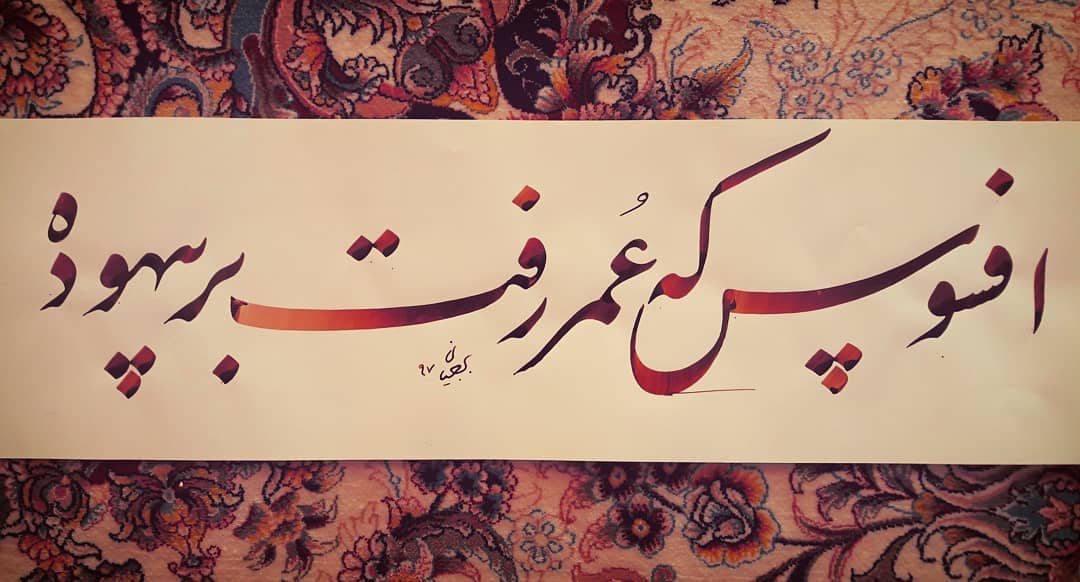 افسوس که عُمر رفت بر بیهوده
۹۷